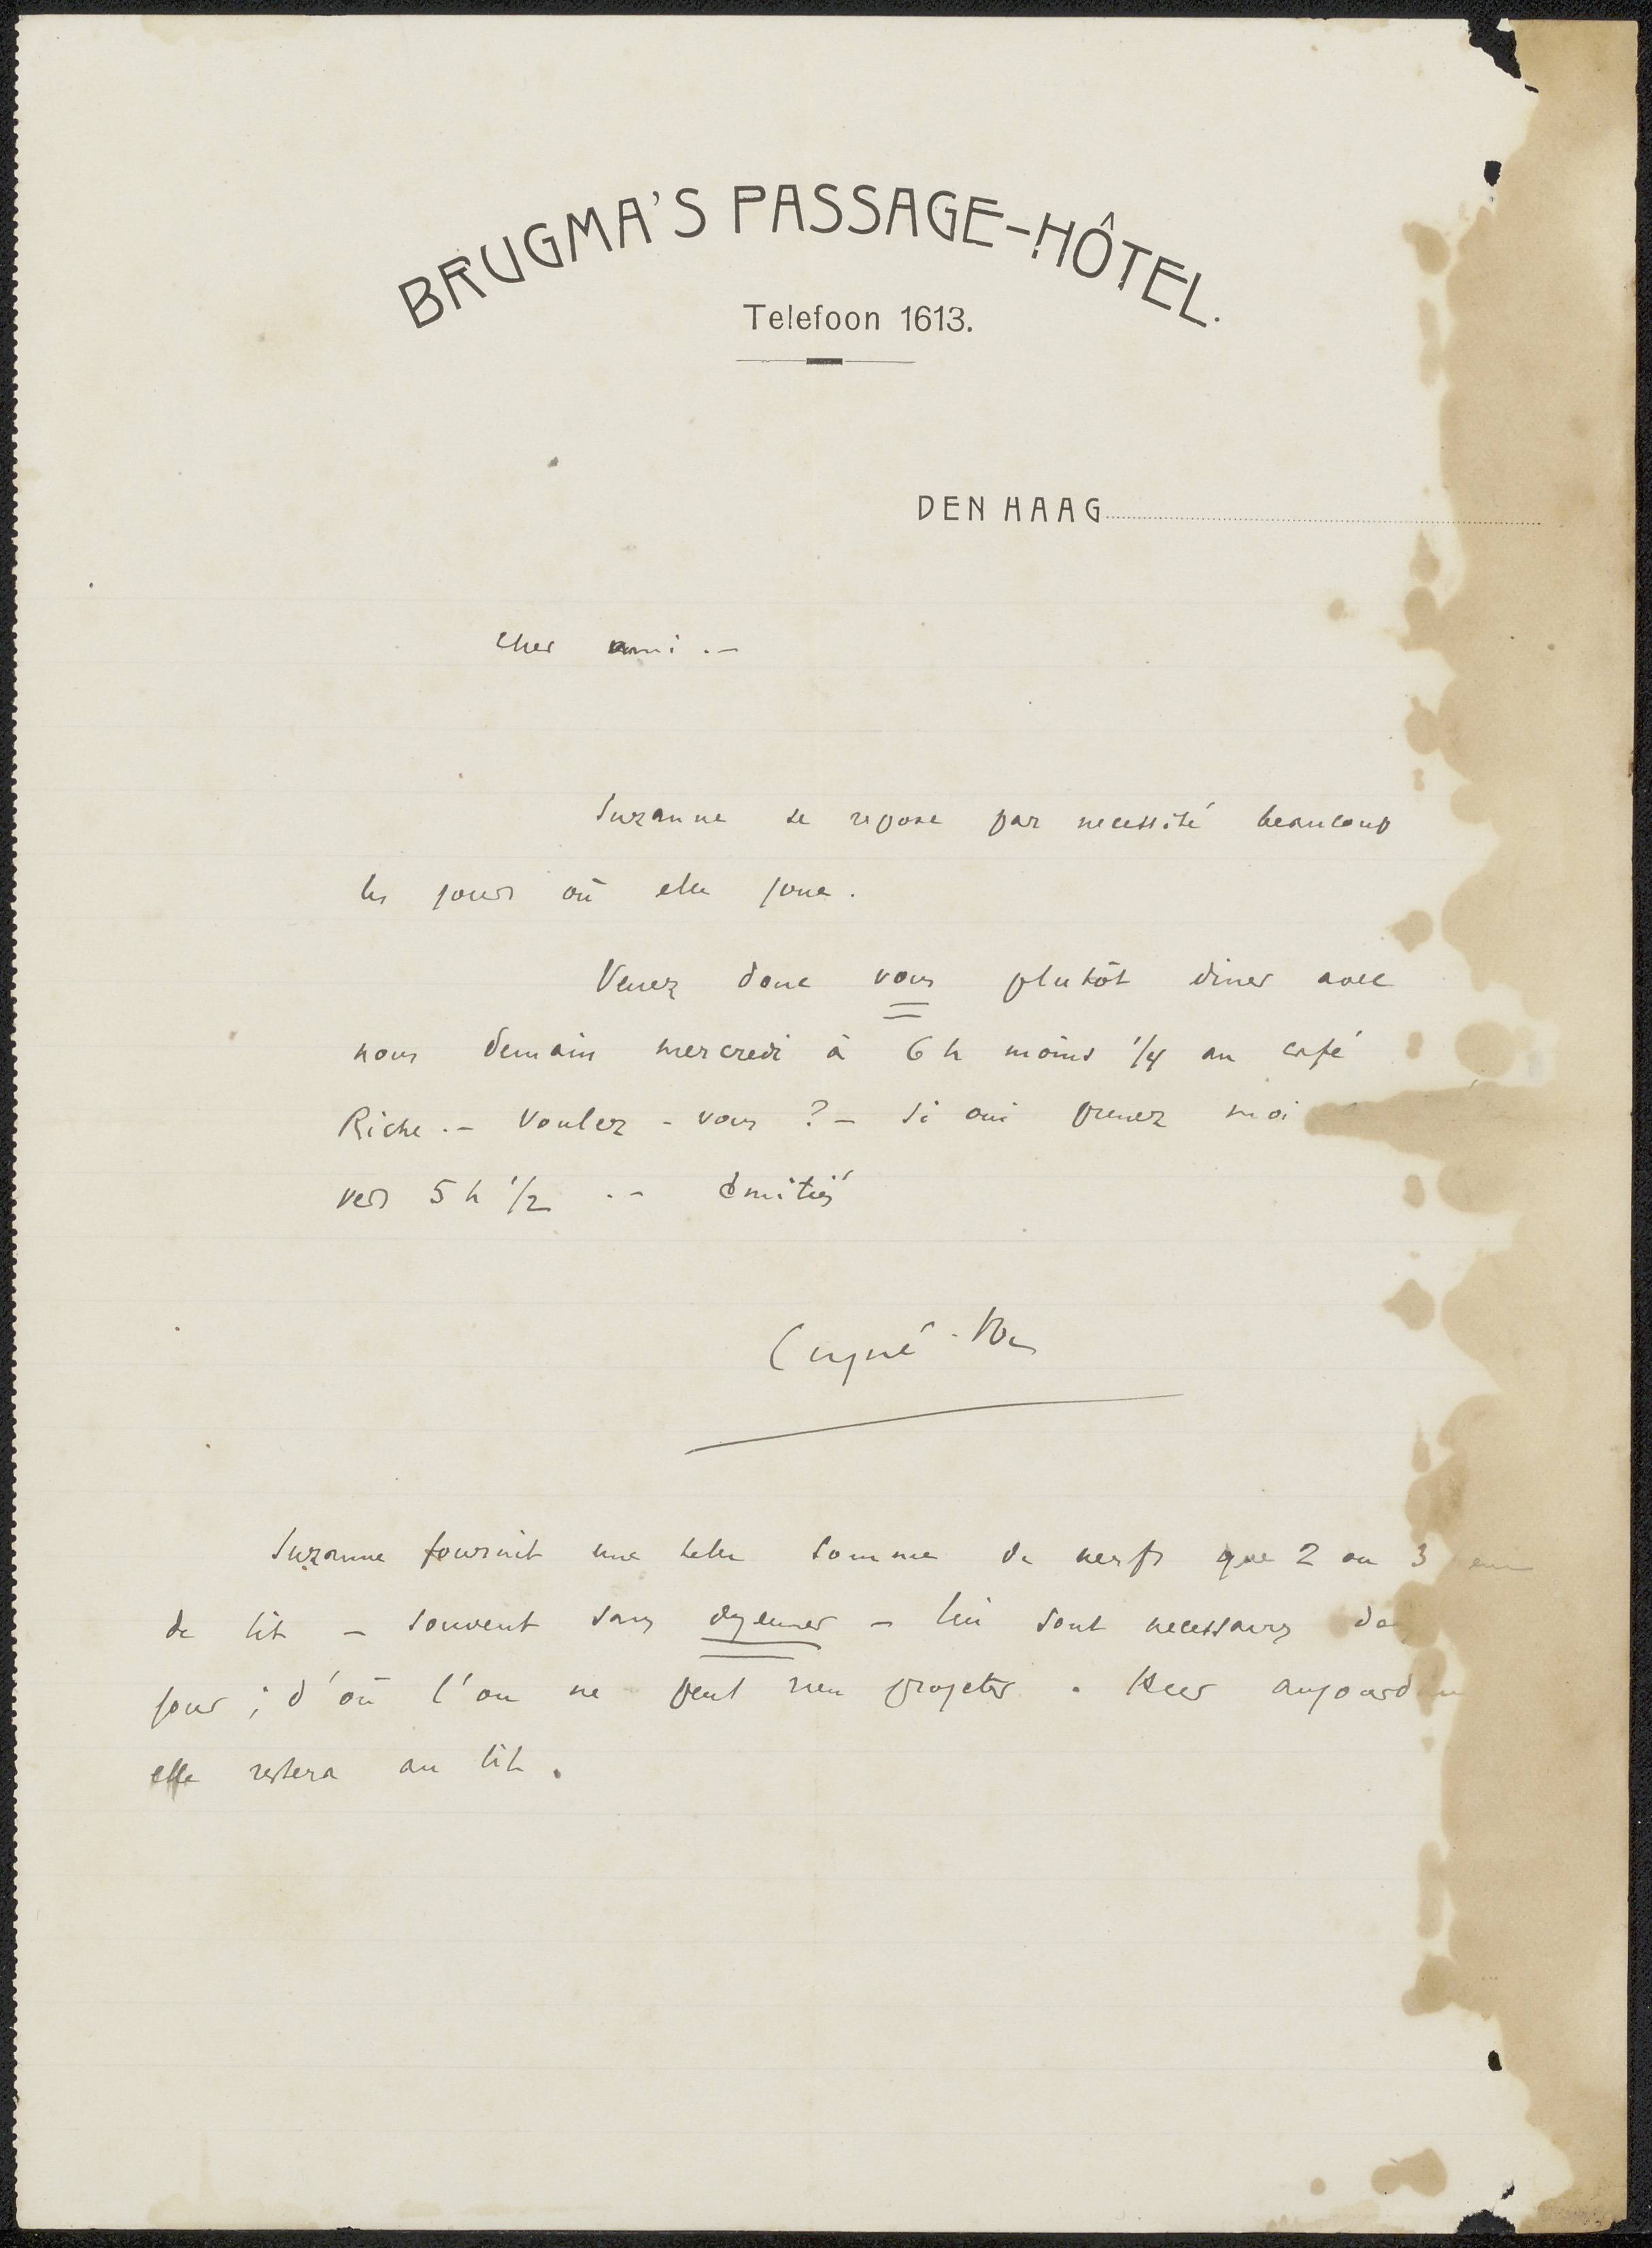 BRUGMA'S PASSAGE-HÔTEL.
Telefoon 1613.
DEN HAAG
Cher ami .-
Suzanne se repose par necessité beaucoup
les jours où elle joue.
Venez donc vous plutôt diner avec
nous demain mercredi à 6 h moins 1/4 au café
Riche .- Voulez-vous ? - Si oui prenez moi
vers 5 h 1/2 .- amitiés
Lugné-Poe
Suzanne fournit une telle somme de nerfs que 2 ou 3
de lit - souvent sans dejeuner - lui sont necessaires
jour ; d'où l'on ne peut rien projeter .
elle restera au lit .